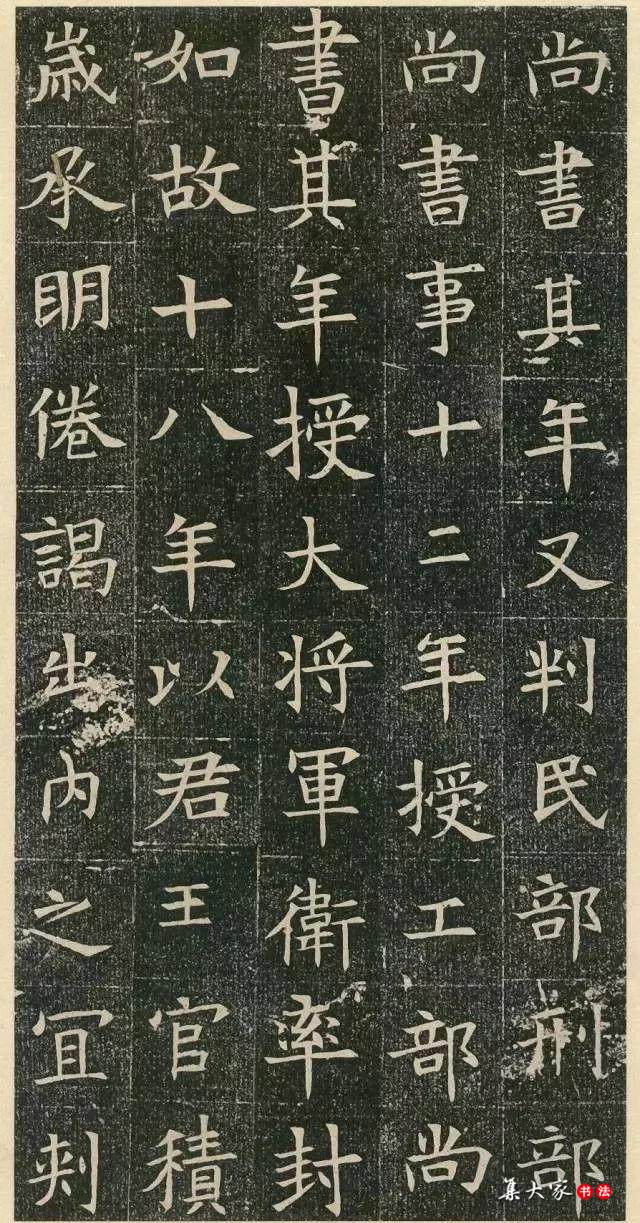 尚書其年又判民部刑部
尚書事十二年授工部尚
書其年授大将軍衛率封
如故十八年以君王官積
歳承明倦謁出内之宜刾
集大家书法